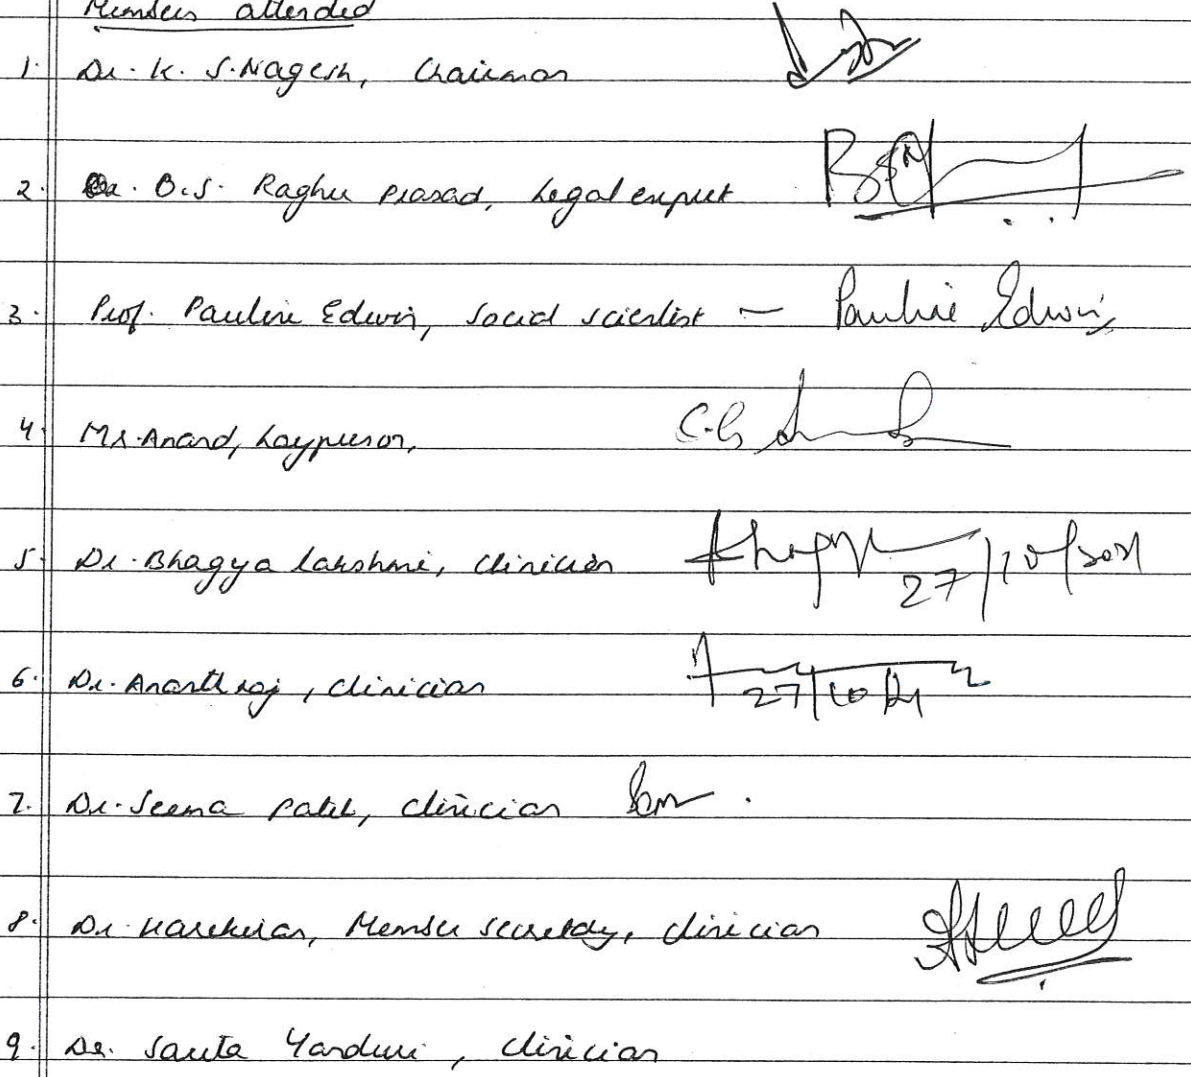 Members attended
1. Dr. K. S. Nagesh, Chairman
2. Dr. B.S. Raghu Prasad, Legal expert
3. Prof. Pauline Edwin, Social scientist — Pauline Edwin
4. Mr. Anand, Layperson, C.G
5. Dr. Bhagya Lakshmi, Clinician 27/10/2021
6. Dr. Ananthraj, Clinician 27/10/21
7. Dr. Seema Patil, Clinician
8. Dr. Harikiran, Member secretary, Clinician
9. Dr. Savita Yarduri, Clinician